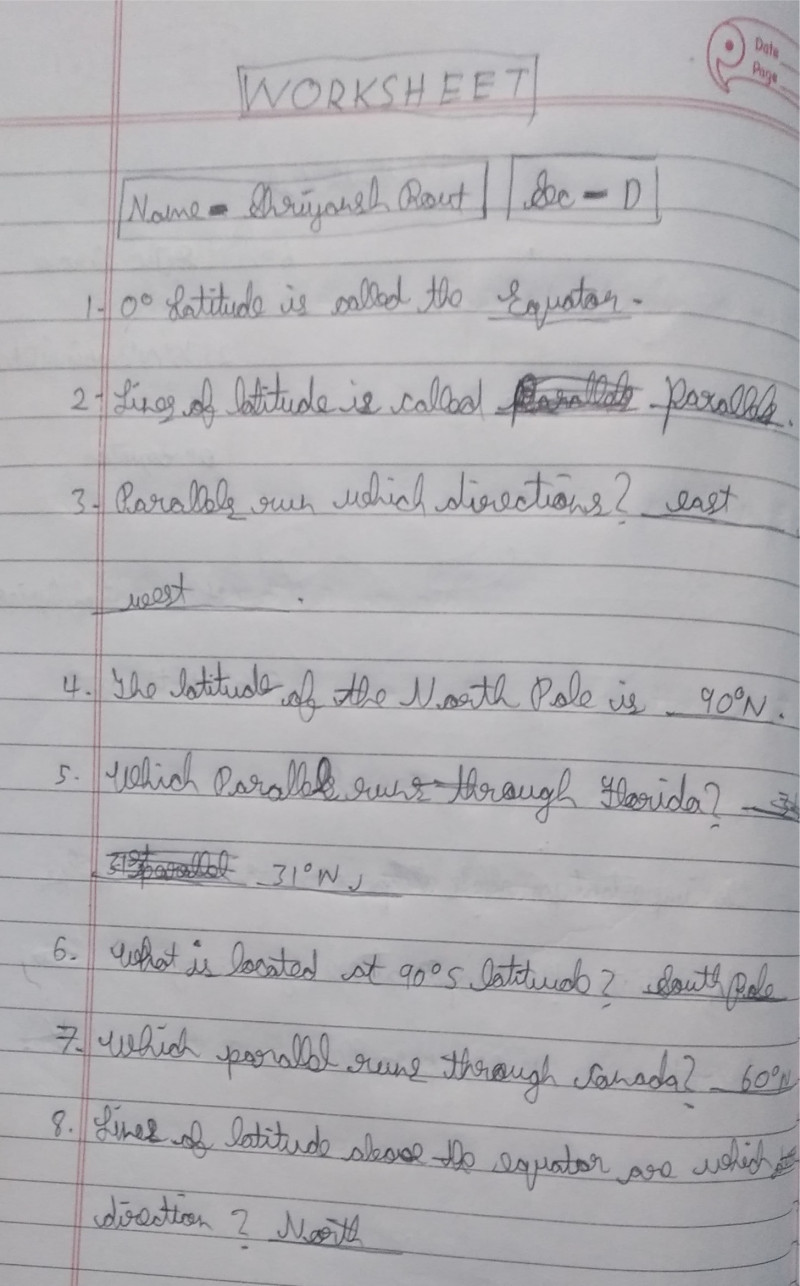 Date
Page
WORKSHEET
Name - Shriyansh Rout Sec - D
1. 0° Latitude is called the Equator.
2. Lines of latitude is called parallels.
3. Parallels run which directions? east
west.
4. The latitude of the North Pole is 90°N.
5. Which Parallels runs through Florida?
31°N.
6. What is located at 90°S latitude? South Pole
7. Which parallel runs through Canada? 60°N
8. Lines of latitude above the equator are which
direction? North